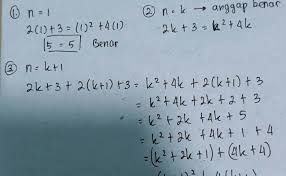 ① n = 1
2(1) + 3 = (1)² + 4(1)
5 = 5 Benar
② n = k → anggap benar
2k + 3 = k² + 4k
③ n = k+1
2k + 3 + 2(k+1) + 3 = k² + 4k + 2(k+1) + 3
= k² + 4k + 2k + 2 + 3
= k² + 2k + 4k + 5
= k² + 2k + 4k + 1 + 4
= (k² + 2k + 1) + (4k + 4)